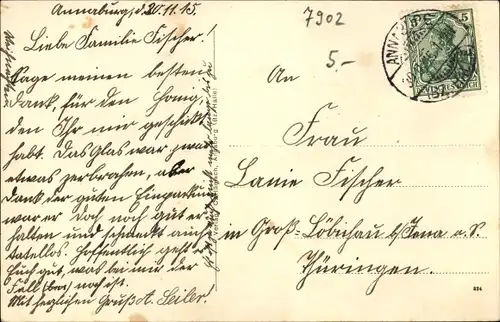 Annaburg, d. 20.11.15.
7902
5.-
Liebe Familie Fischer!
Sage meinen besten
Dank, für den Honig,
den Ihr mir geschickt
habt. Das Glas war zwar
etwas zerbrochen, aber
dank der guten Einpackung
war er doch noch gut er-
halten und schmeckt auch
tadellos. Hoffentlich geht es
Euch gut, was bei mir der
Fall noch ist.
Mit herzlichen Gruß A. Seiler!
An
Frau
Lanie Fischer
in Groß-Löbichau b/Jena a. S.
Thüringen.
5
DEUTSCHES REICH
ANNABURG
824